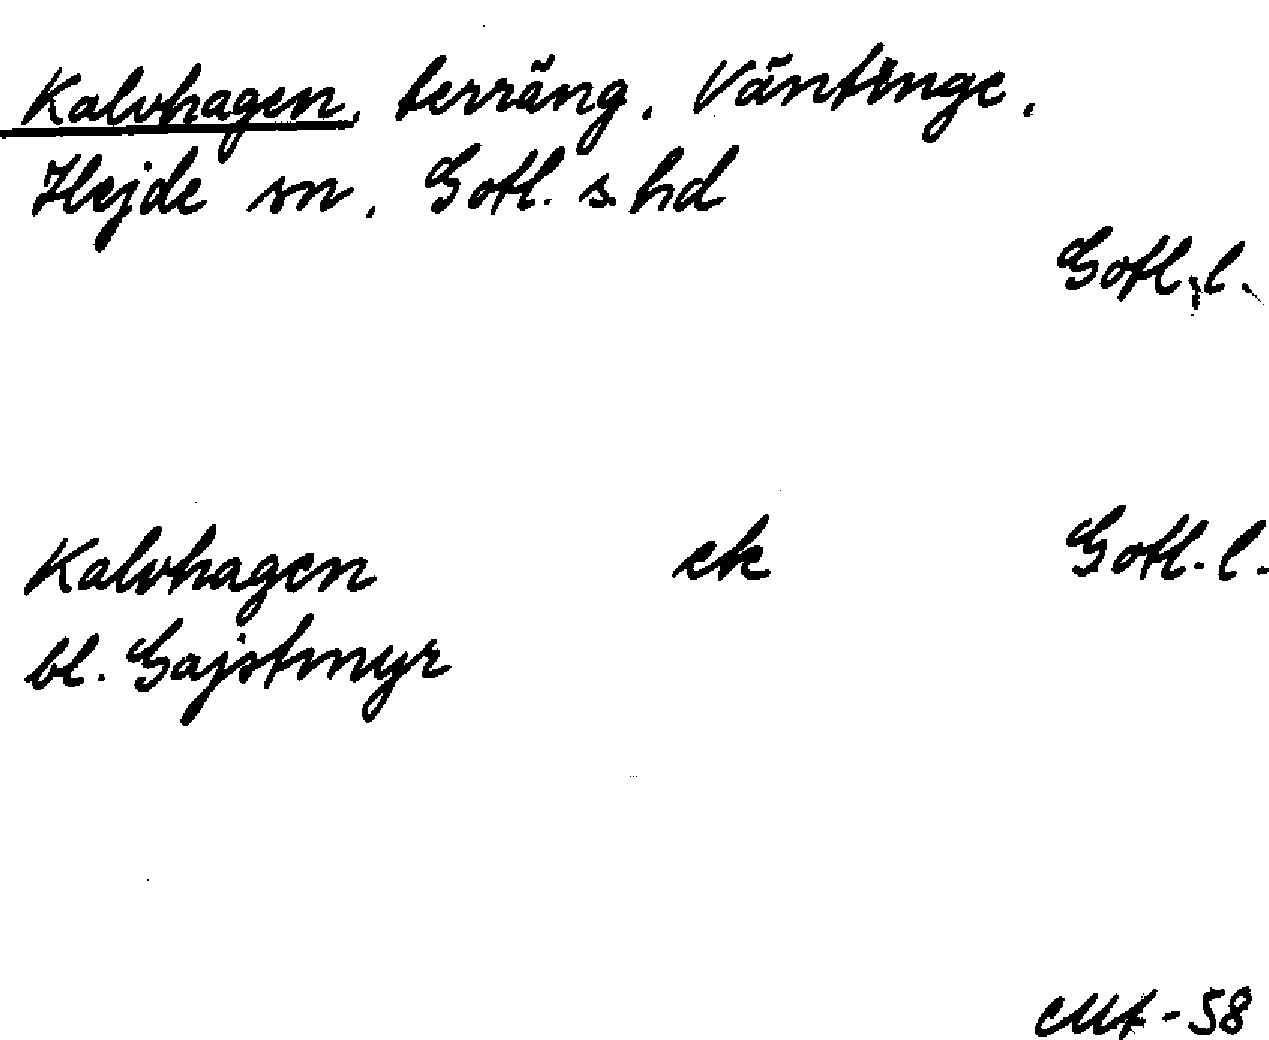 Kalvhagen, terräng, Väntinge,
Hejde sn, Gotl. s. hd
Gotl. l.
Kalvhagen ek Gotl. l.
bl. Gajstmyr
-58